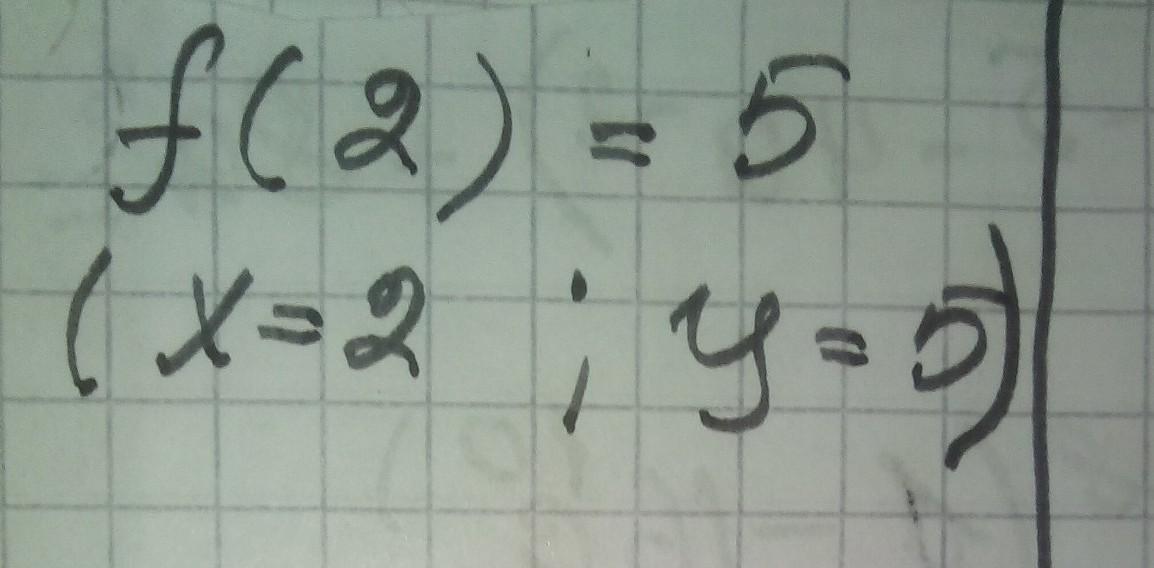 f(2) = 5
(x=2 ; y=5)